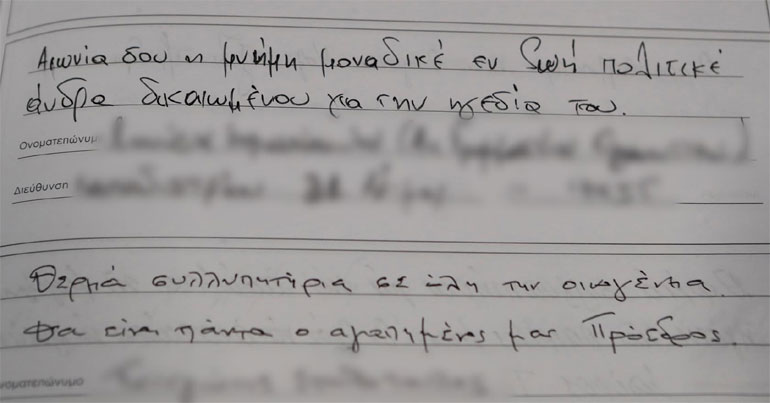 Αιωνία σου η μνήμη μοναδικέ εν ζωή πολιτικέ
άνδρα δικαιωμένου για την ηγεσία του.
Ονοματεπώνυμ
Διεύθυνση
Θερμά συλλυπητήρια σε όλη την οικογένεια
Θα είναι πάντα ο αγαπημένος μας Πρόεδρος.
νοματεπώνυμο